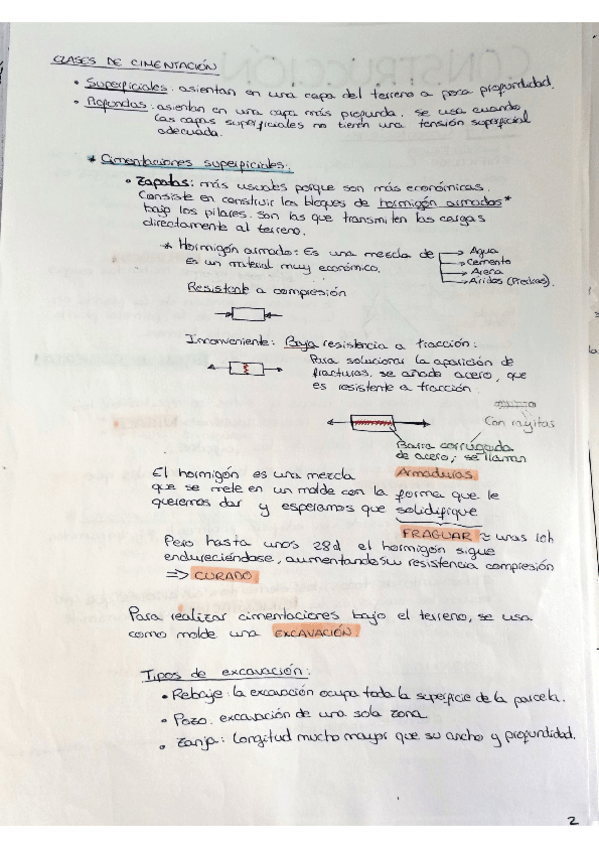 CLASES DE CIMENTACIÓN
• Superficiales: asientan en una capa del terreno a poca profundidad.
• Profundas: asientan en una capa más profunda. se usa cuando
las capas superficiales no tienen una tensión superficial
adecuada.
* Cimentaciones superficiales:
• Zapatas: más usuales porque son más económicas.
Consiste en construir los bloques de hormigón armados*
bajo los pilares. Son las que transmiten las cargas
directamente al terreno.
* Hormigón armado: Es una mezcla de
Agua
Cemento
Arena
Áridos (Piedras).
Es un material muy económico.
Resistente a compresión
Inconveniente: Baja resistencia a tracción:
Para solucionar la aparición de
fracturas, se añade acero, que
es resistente a tracción
Con rayitas
Barra corrugada
de acero; se llaman
Armaduras
El hormigón es una mezcla
que se mete en un molde con la forma que le
queremos dar y esperamos que solidifique
FRAGUAR ≈ unas 1ch
Pero hasta unos 28d el hormigón sigue
endureciéndose, aumentando su resistencia compresión
=> CURADO
Para realizar cimentaciones bajo el terreno, se usa
como molde una EXCAVACIÓN.
Tipos de excavación:
• Rebaje: la excavación ocupa toda la superficie de la parcela.
• Pozo: excavación de una sola zona
• Zanja: longitud mucho mayor que su ancho y profundidad.
2